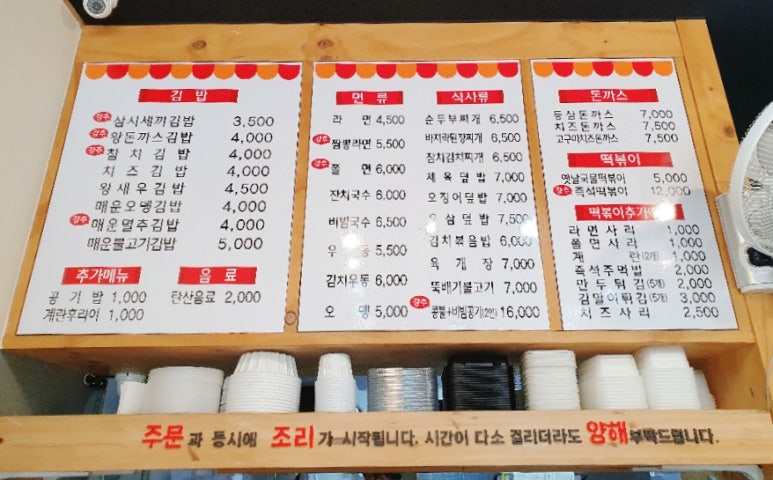 김 밥
강추 삼시세끼김밥 3,500
강추 왕돈까스김밥 4,000
강추 참 치 김 밥 4,000
치 즈 김 밥 4,000
왕새우김밥 4,500
매운오뎅김밥 4,000
강추 매운멸추김밥 4,000
매운불고기김밥 5,000
추가메뉴
공 기 밥 1,000
계란후라이 1,000
음 료
탄산음료 2,000
면 류
라 면 4,500
강추 짬뽕라면 5,500
강추 쫄 면 6,000
잔치국수 6,000
비빔국수 6,500
우 동 5,500
김치우동 6,000
오 뎅 5,000
식사류
순두부찌개 6,500
바지락된장찌개 6,500
참치김치찌개 6,500
제 육 덮 밥 7,000
오징어덮밥 7,000
오 삼 덮 밥 7,500
김치볶음밥 6,000
육 개 장 7,000
뚝배기불고기 7,000
강추 콩불+비빔공기(2인) 16,000
돈까스
등심돈까스 7,000
치즈돈까스 7,500
고구마치즈돈까스 7,500
떡볶이
옛날국물떡볶이 5,000
강추 즉석떡볶이 12,000
떡볶이추가메뉴
라면사리 1,000
쫄면사리 1,000
계 란(2개) 1,000
즉석주먹밥 2,000
만두튀김(5개) 2,000
김말이튀김(5개) 3,000
치즈사리 2,500
주문과 동시에 조리가 시작됩니다. 시간이 다소 걸리더라도 양해부탁드립니다.